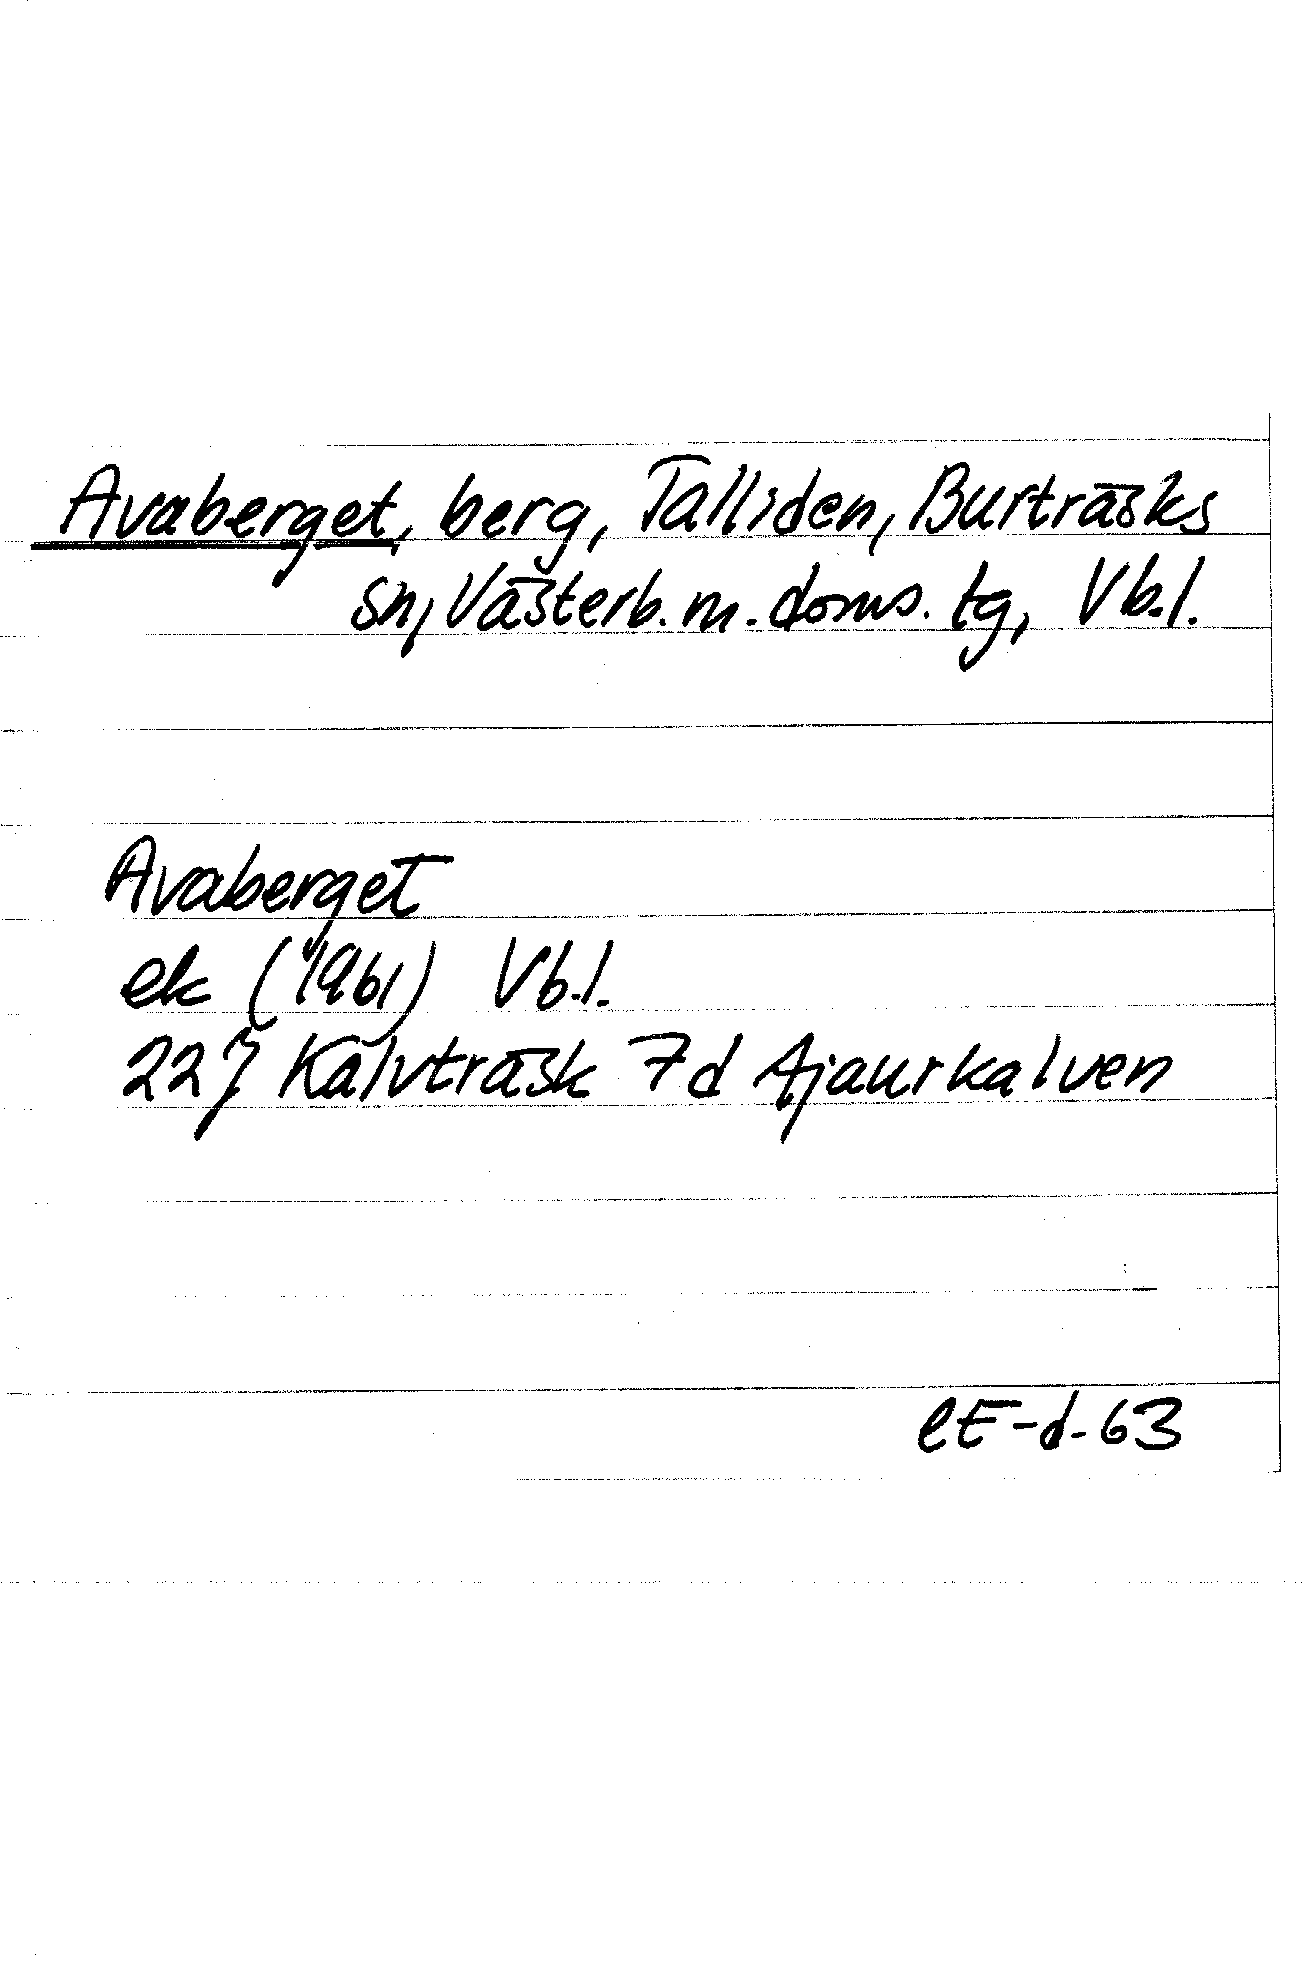 Avaberget, berg, Talliden, Burträsks
sn, Västerb. m. doms. tg, Vb.l.
Avaberget
ek (1961) Vb.l.
22J Kalvträsk 7d Ajaurkalven
eE-d-63